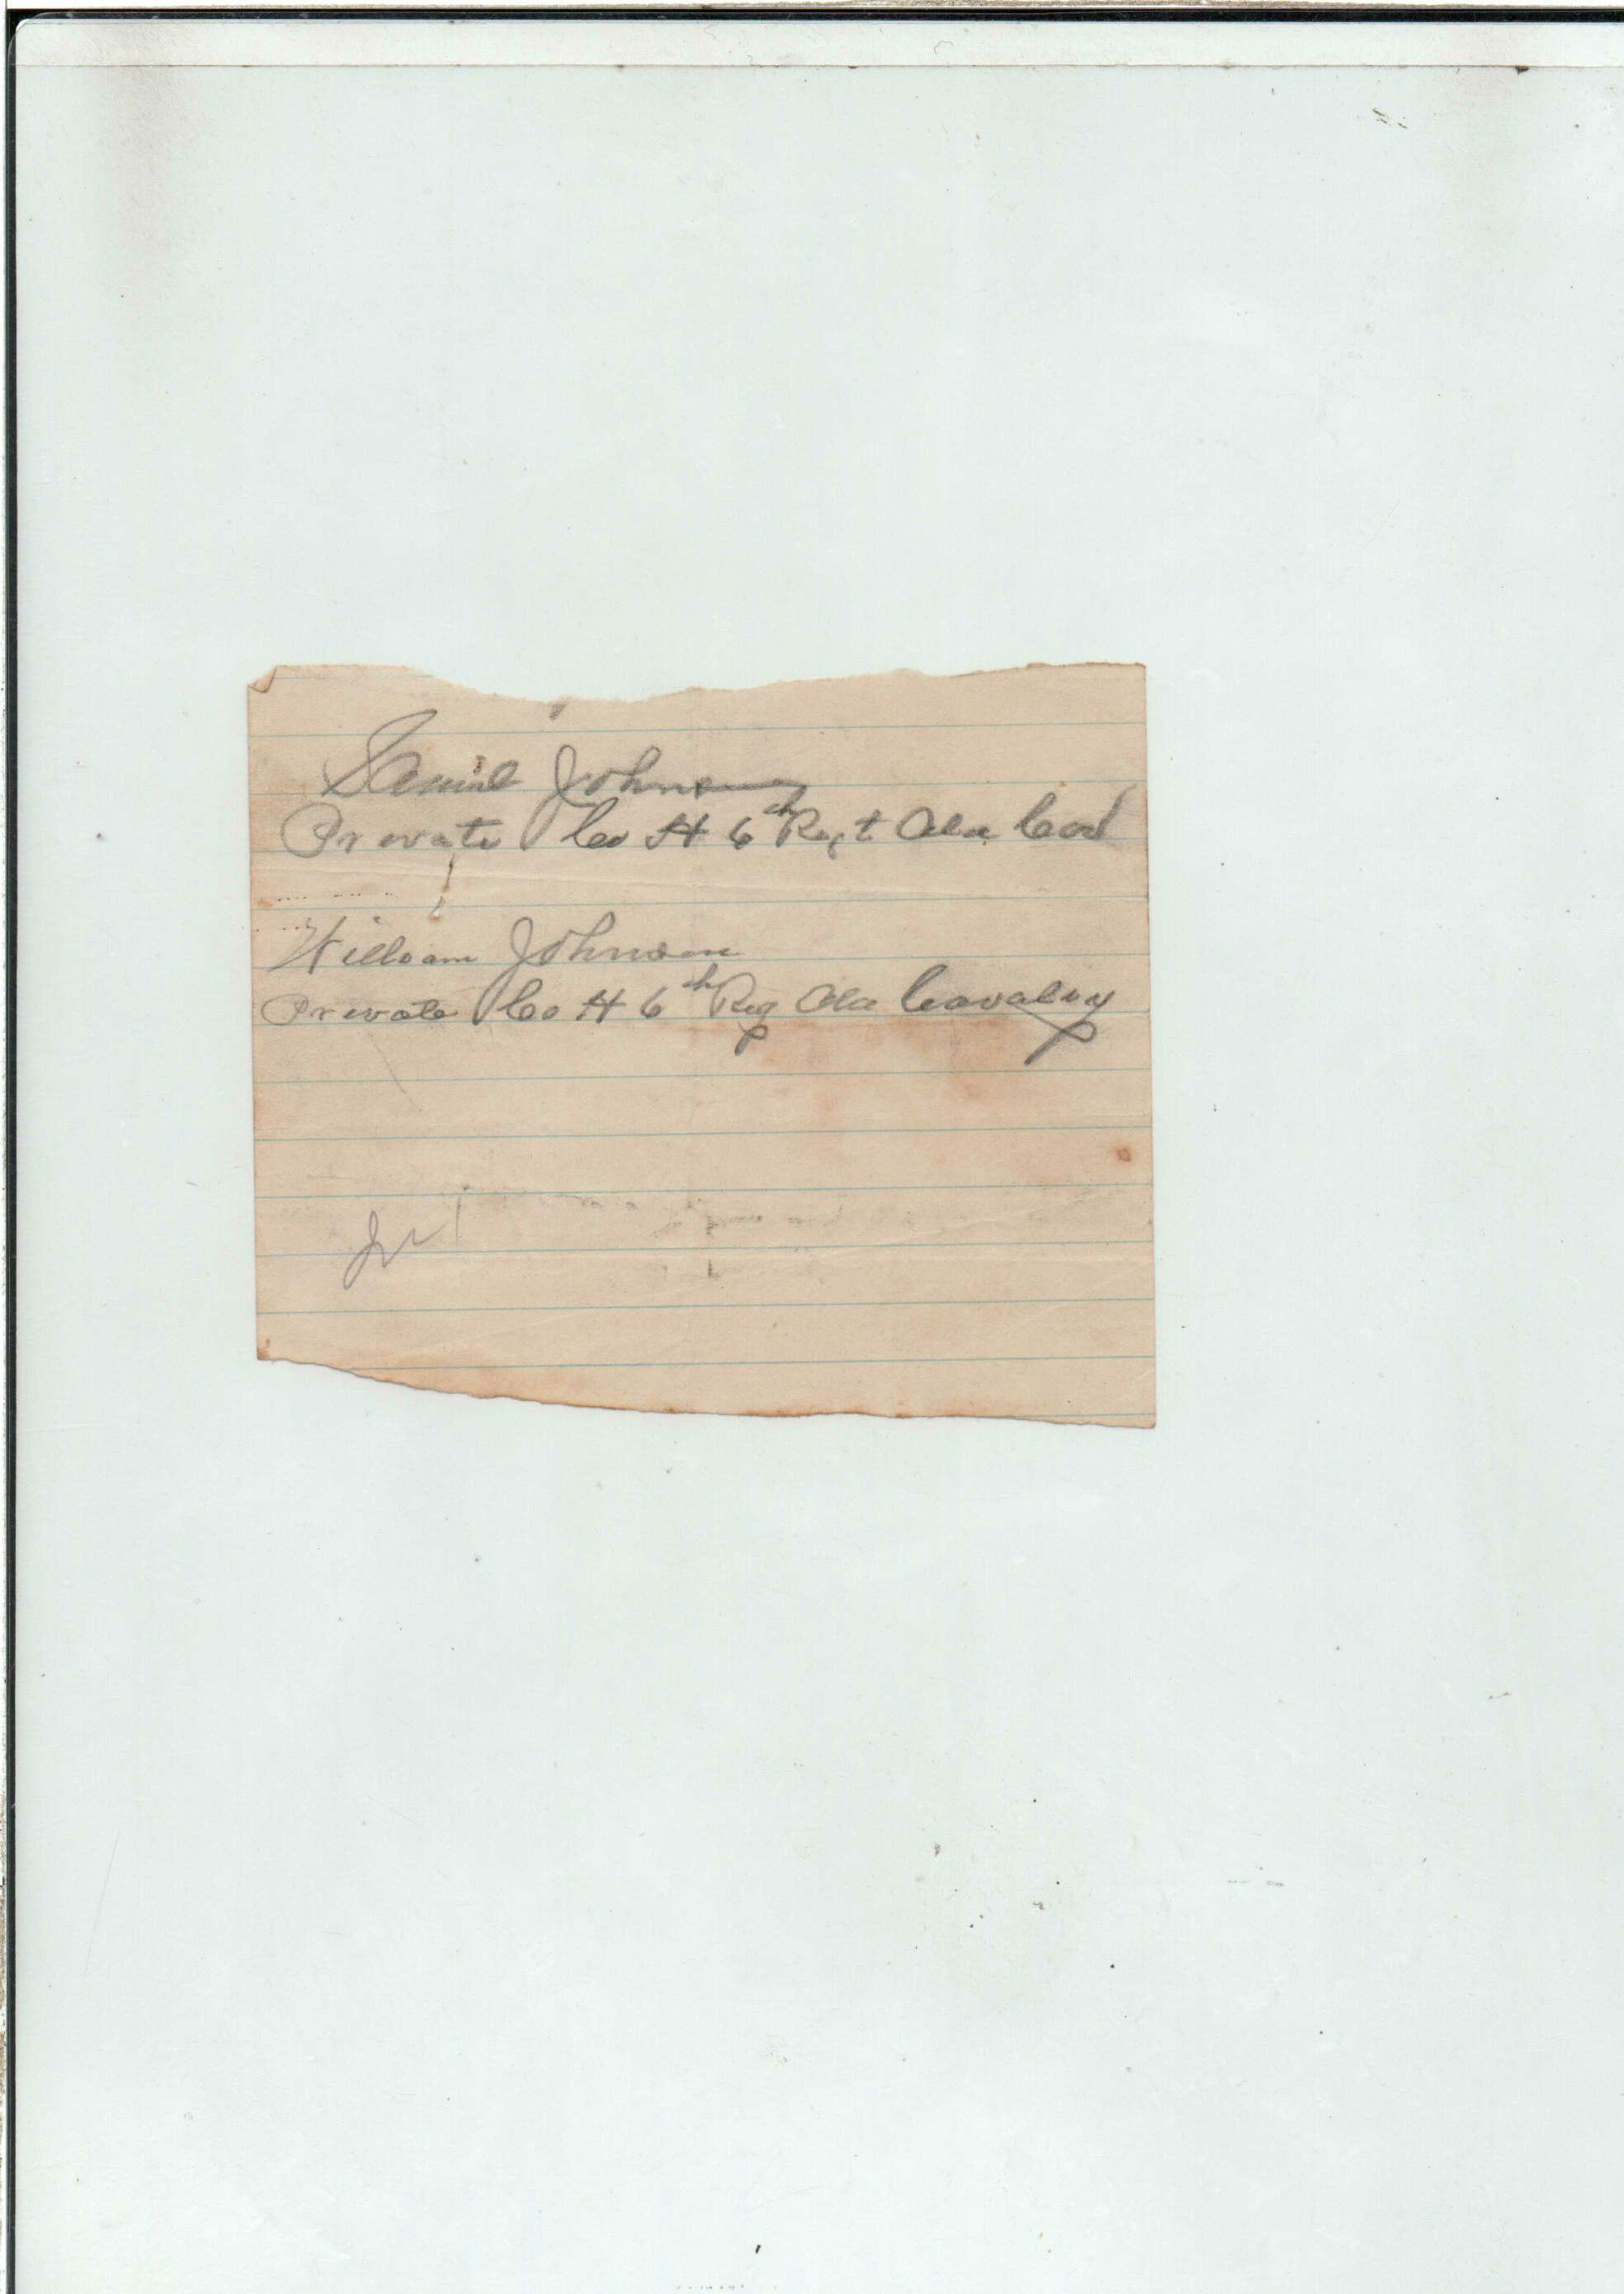 Johnson
Private Co H 6th Regt Ala Cav
William Johnson
Private Co H 6th Reg Ala Cavalry